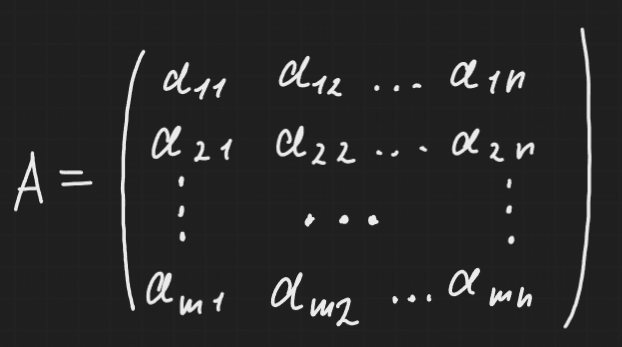 A = ( a₁₁ a₁₂ ... a₁ₙ
a₂₁ a₂₂ ... a₂ₙ
⋮ ... ⋮
aₘ₁ aₘ₂ ... aₘₙ )